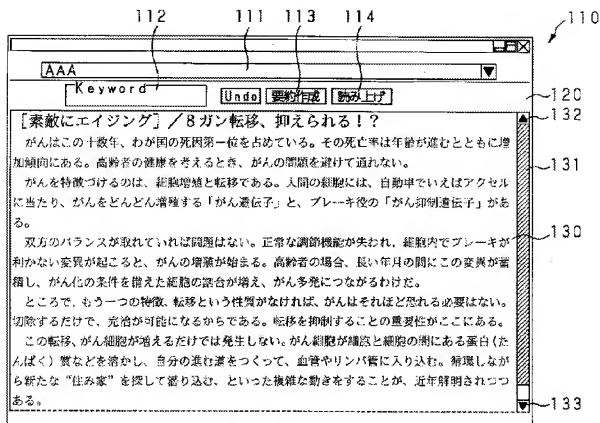 112
111
113
114
110
AAA
Keyword
Undo 要約作成 読み上げ
120
［素敵にエイジング］／８ガン転移、抑えられる！？
132
がんはこの十数年、わが国の死因第一位を占めている。その死亡率は年齢が進むとともに増
加傾向にある。高齢者の健康を考えるとき、がんの問題を避けて通れない。
131
がんを特徴づけるのは、細胞増殖と転移である。人間の細胞には、自動車でいえばアクセル
に当たり、がんをどんどん増殖する「がん遺伝子」と、ブレーキ役の「がん抑制遺伝子」があ
る。
130
双方のバランスが取れていれば問題はない。正常な調節機能が失われ、細胞内でブレーキが
利かない変異が起こると、がんの増殖が始まる。高齢者の場合、長い年月の間にこの変異が蓄
積し、がん化の条件を備えた細胞の割合が増え、がん多発につながるわけだ。
ところで、もう一つの特徴、転移という性質がなければ、がんはそれほど恐れる必要はない。
切除するだけで、完治が可能になるからである。転移を抑制することの重要性がここにある。
この転移、がん細胞が増えるだけでは発生しない。がん細胞が細胞と細胞の間にある蛋白（た
んぱく）質などを溶かし、自分の進む道をつくって、血管やリンパ管に入り込む。循環しなが
ら新たな“住み家”を探して潜り込む、といった複雑な動きをすることが、近年解明されつつ
ある。
133